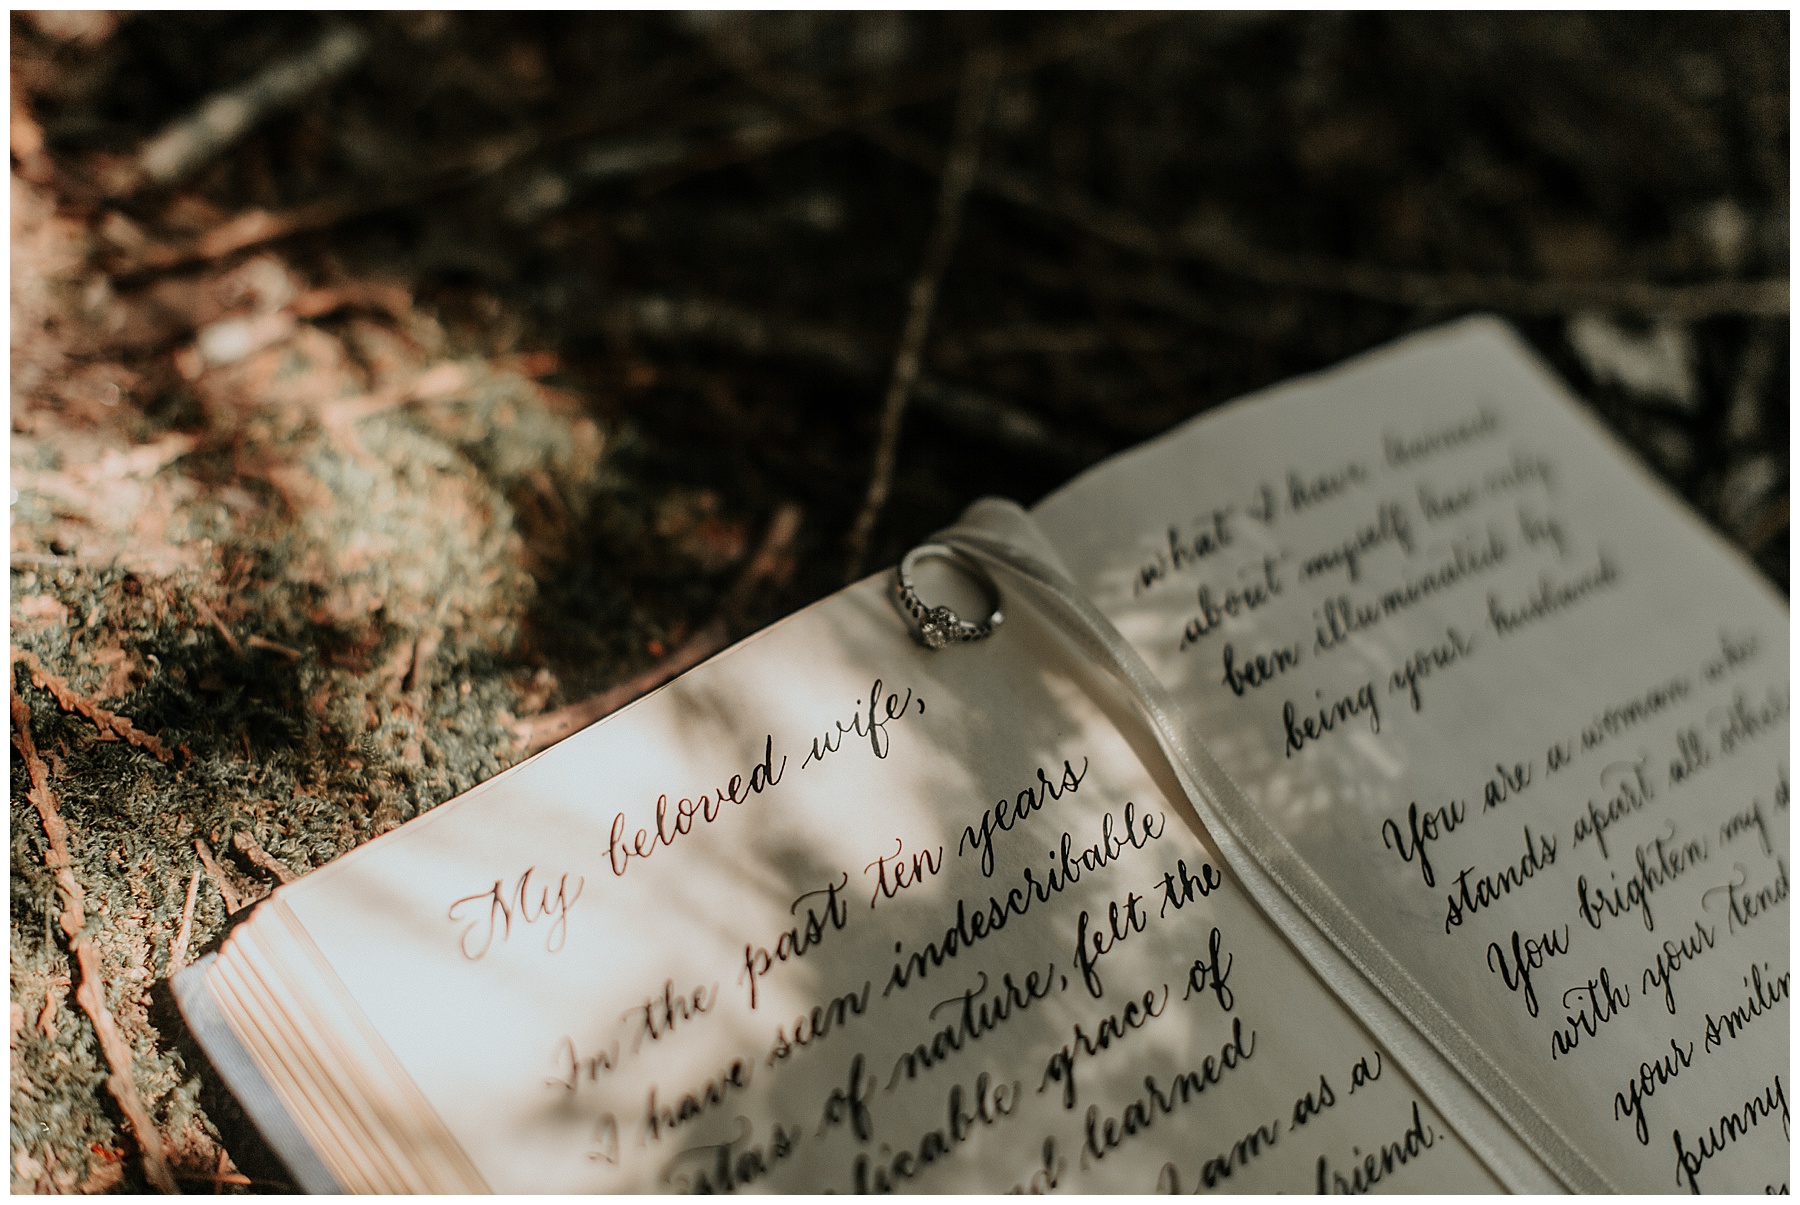 My beloved wife,
In the past ten years
I have seen indescribable
of nature, felt the
grace of
learned
I am as a
friend.
what I have learned
about myself has only
been illuminated by
being your husband
You are a woman who
stands apart all
You brighten my
with your
your
punny